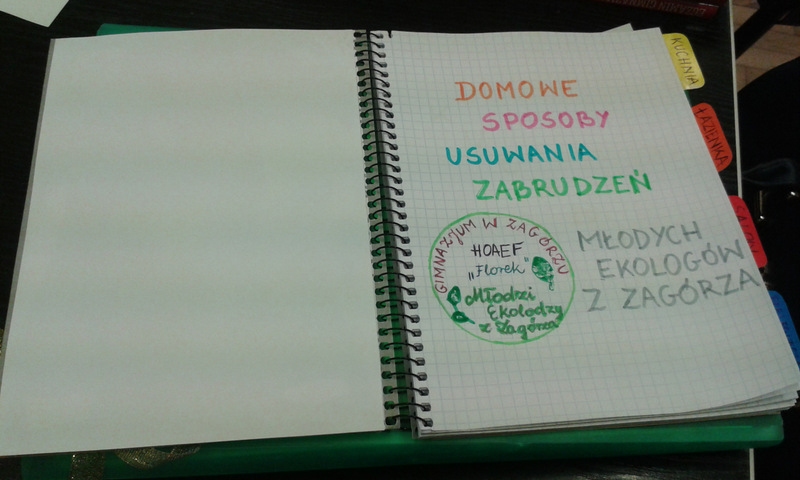 KUCHNIA
ŁAZIENKA
DOMOWE
SPOSOBY
USUWANIA
ZABRUDZEŃ
GIMNAZJUM W ZAGÓRZU
HOAEF
„Florek”
Młodzi
Ekolodzy
z Zagórza
MŁODYCH
EKOLOGÓW
Z ZAGÓRZA